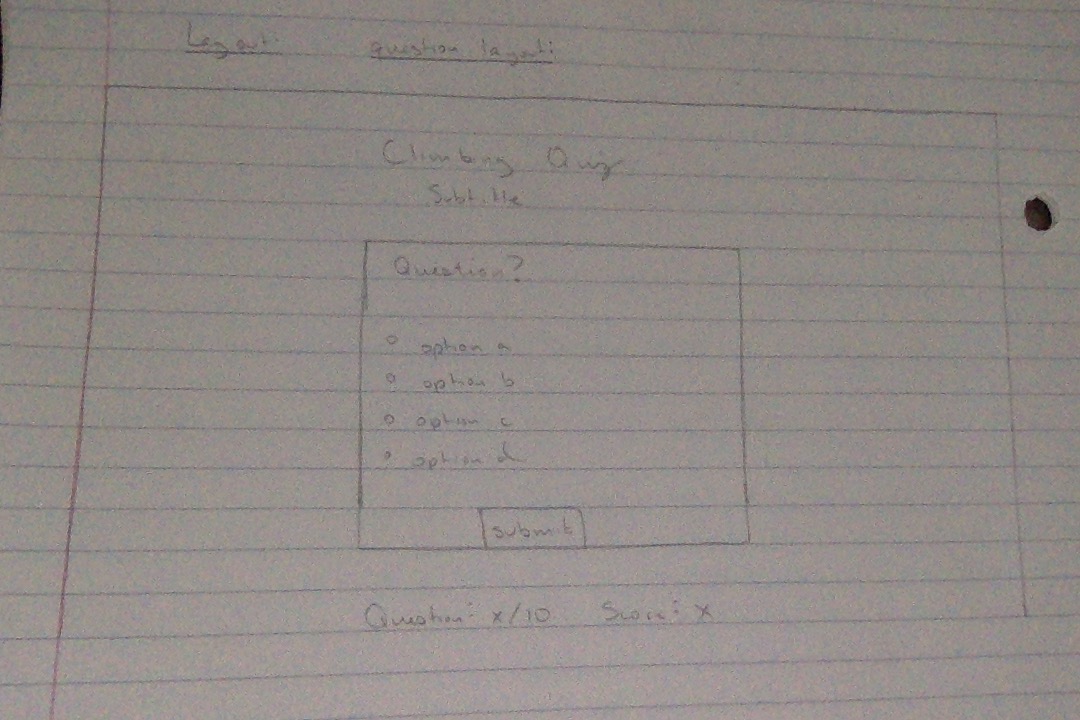 Layout: question layout:
Climbing Quiz
Subtitle
Question?
option a
option b
option c
option d
submit
Question: x/10 Score: x